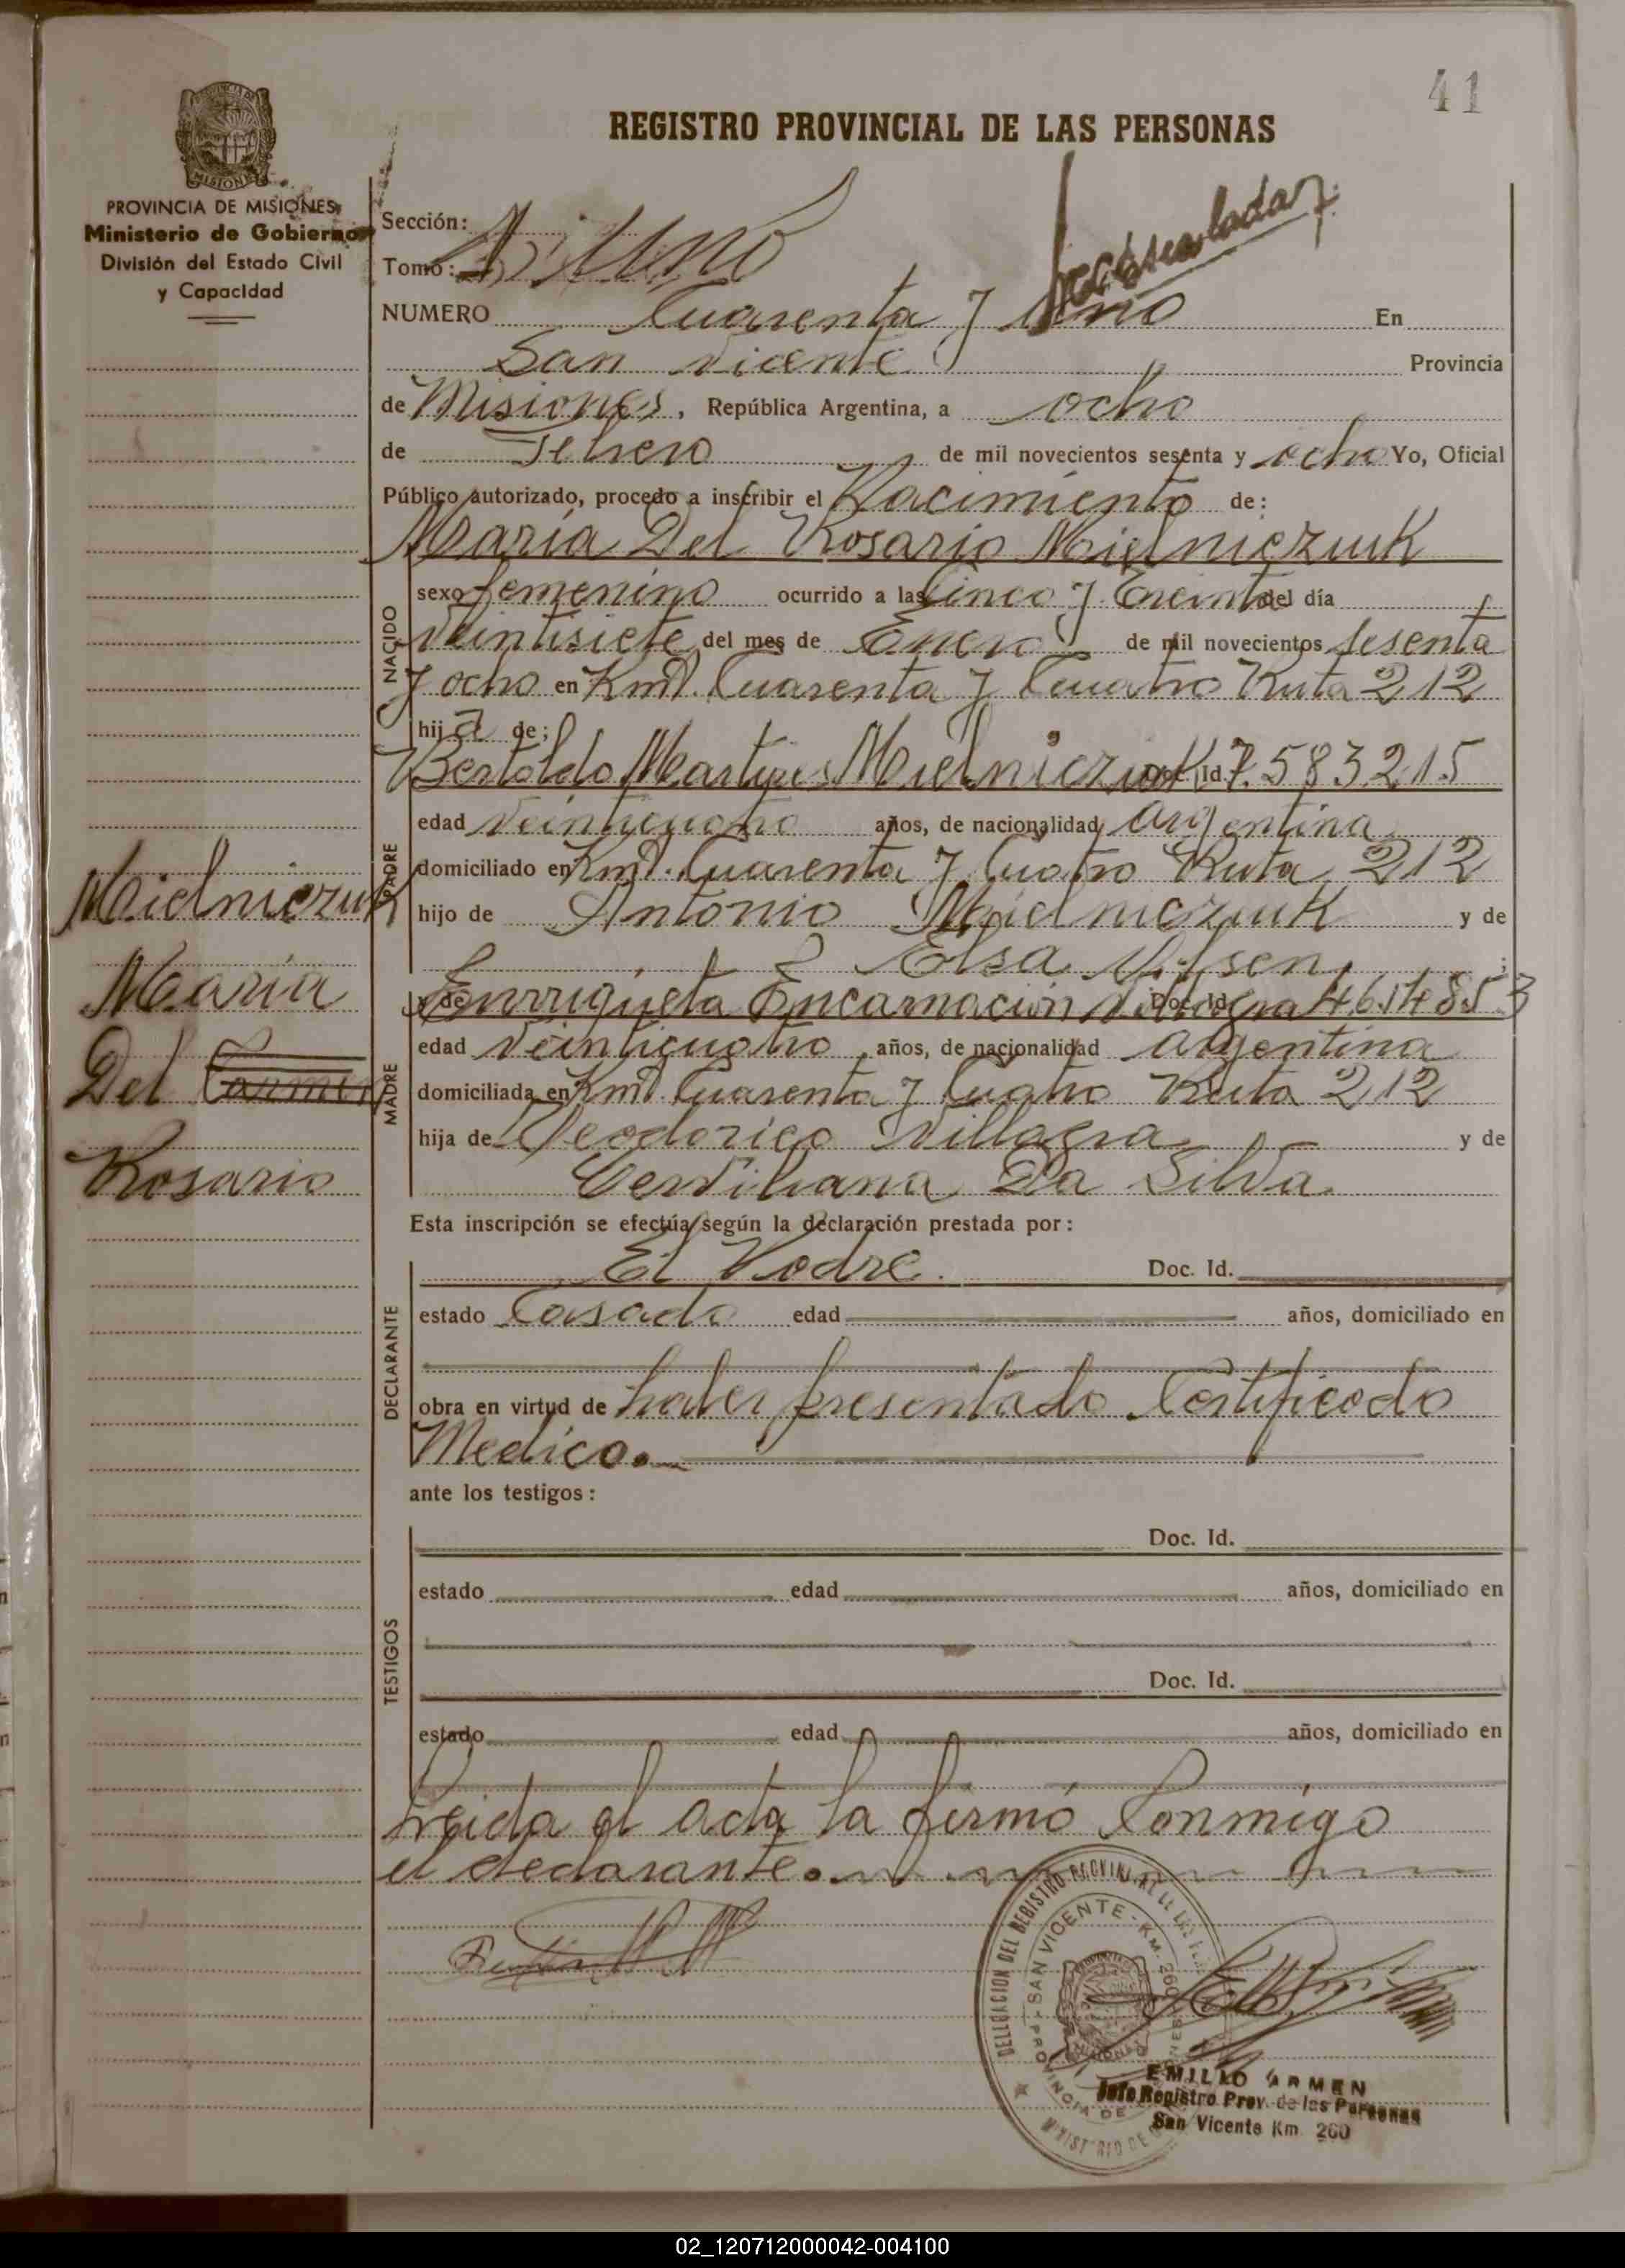 41
REGISTRO PROVINCIAL DE LAS PERSONAS
PROVINCIA DE MISIONES
Ministerio de Gobierno
División del Estado Civil
y Capacidad
Sección:
Tomo: Uno
NUMERO Cuarenta y Uno En
San Vicente Provincia
de Misiones, República Argentina, a ocho
de Febrero de mil novecientos sesenta y ocho Yo, Oficial
Público autorizado, procedo a inscribir el Nacimiento de:
María Del Rosario Mielniczuk
NACIDO
sexo femenino ocurrido a las Cinco y Treinta del día
Veintisiete del mes de Enero de mil novecientos sesenta
y ocho en Kmt. Cuarenta y Cuatro Ruta 212
hija de;
Bertoldo Mielniczuk Doc. Id. 7.583215
PADRE
edad Veinticuatro años, de nacionalidad argentina
domiciliado en Kmt. Cuarenta y Cuatro Ruta 212
hijo de Antonio Mielniczuk y de
Elsa
y de Enrriqueta Encarnación Villagra Doc. Id. 4614853
MADRE
edad Veinticuatro años, de nacionalidad argentina
domiciliada en Kmt. Cuarenta y Cuatro Ruta 212
hija de Teodorico Villagra y de
Da Silva
Mielniczuk
María
Del Carmen
Rosario
Esta inscripción se efectúa según la declaración prestada por:
DECLARANTE
El Padre. Doc. Id.
estado Casado edad años, domiciliado en
obra en virtud de haber presentado Certificado
Medico.
ante los testigos:
TESTIGOS
Doc. Id.
estado edad años, domiciliado en
Doc. Id.
estado edad años, domiciliado en
Leida el acta la firmó Conmigo
el declarante.
DELEGACION DEL REGISTRO PROVINCIAL DE LAS
SAN VICENTE - KM. 260
PROVINCIA DE
EMILIO ARMEN
Jefe Registro Prov. de las Personas
San Vicente Km. 260
02_120712000042-004100